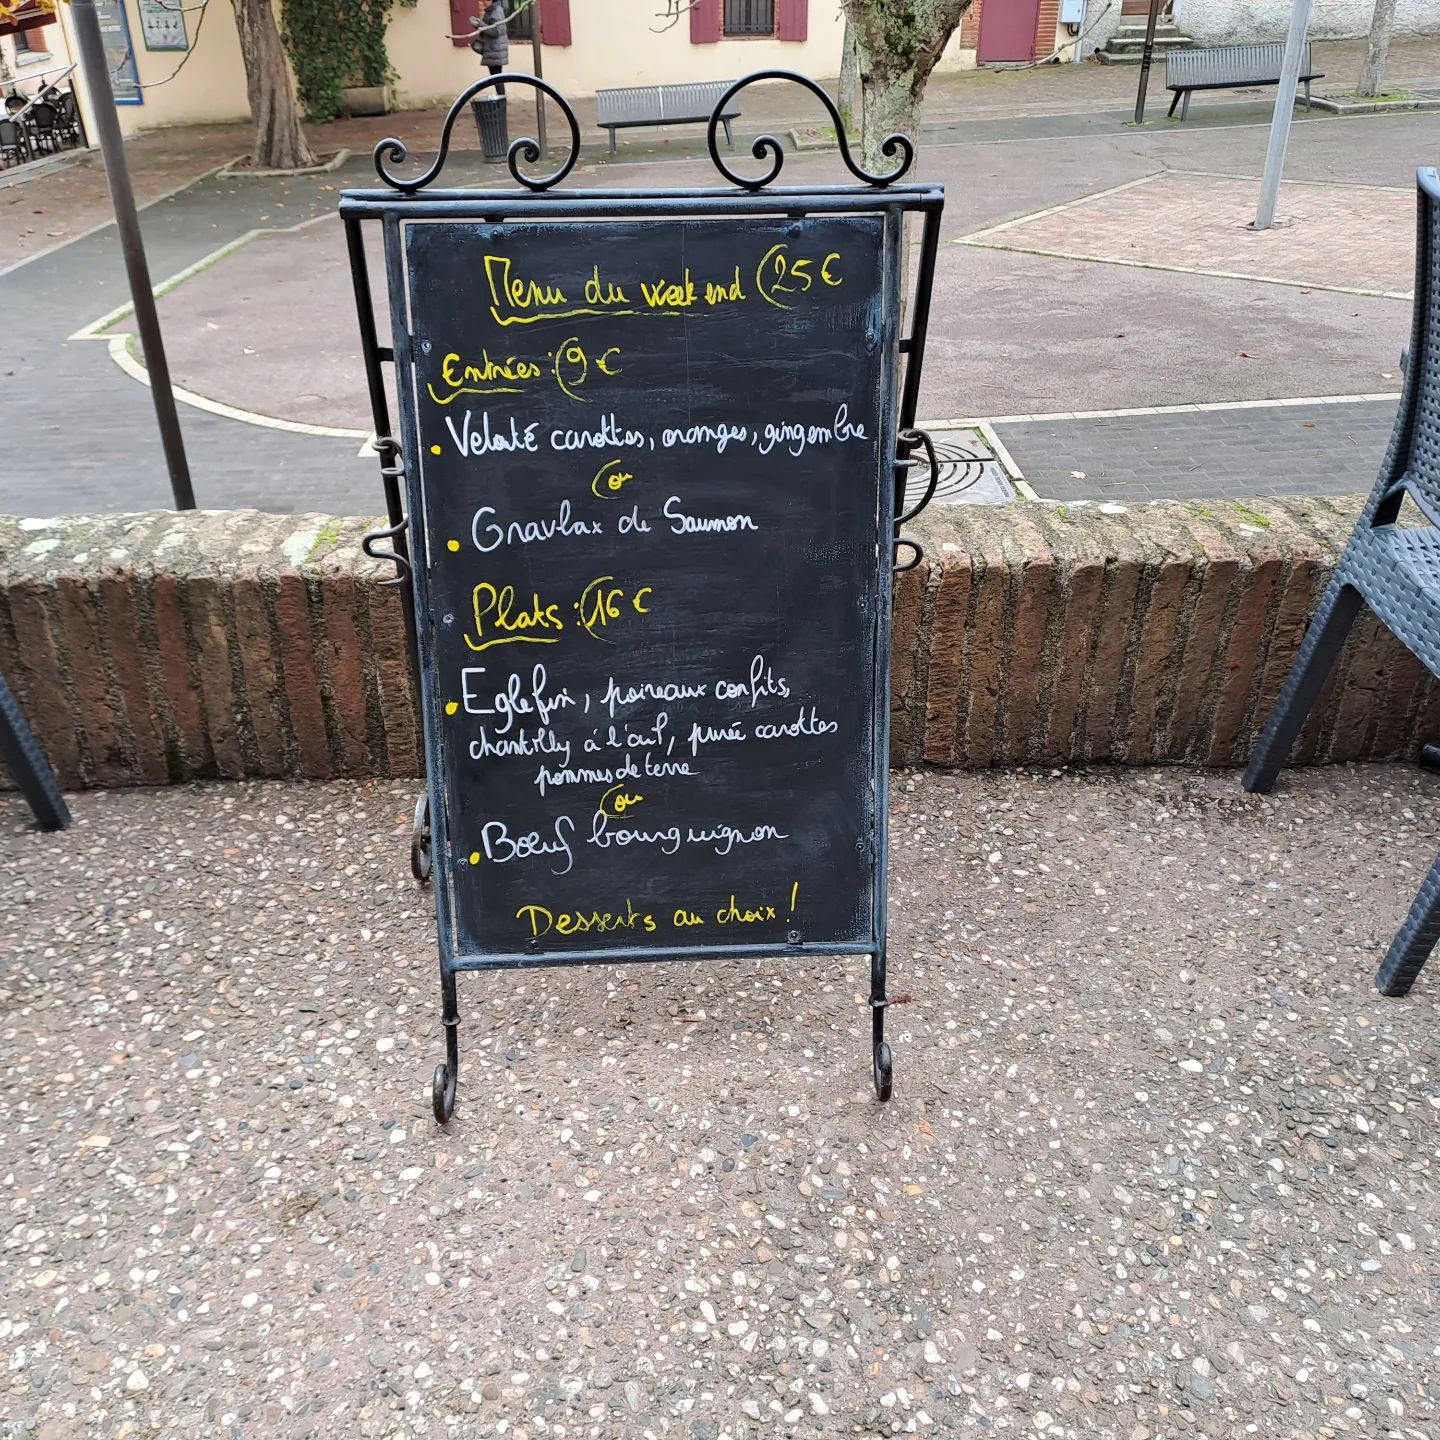 Menu du week end (25€
Entrées : (9€
• Velouté carottes, oranges, gingembre
(ou
• Gravlax de Saumon
Plats : (16€
• Eglefin, poireaux confits,
chantilly à l'ail, purée carottes
pommes de terre
(ou
• Bœuf bourguignon
Desserts au choix !